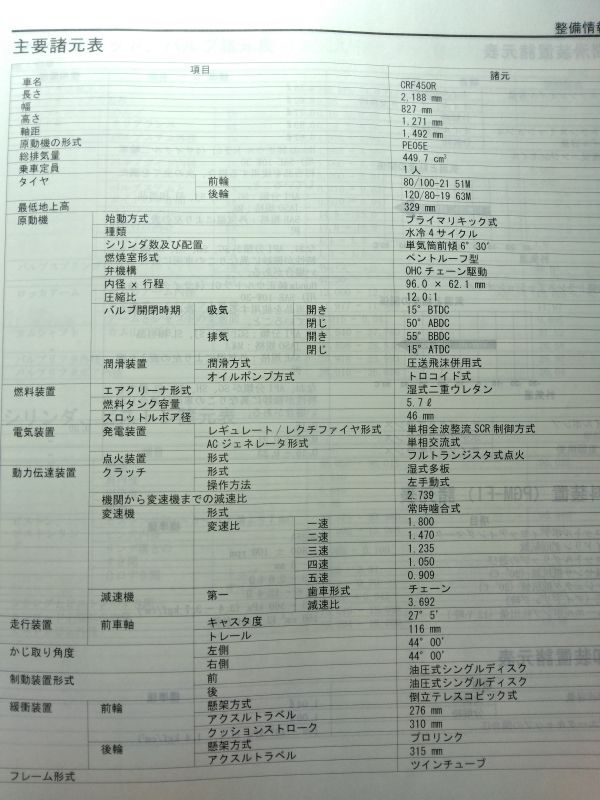 整備情報
主要諸元表
項目 諸元
車名 CRF450R
長さ 2,188 mm
幅 827 mm
高さ 1,271 mm
軸距 1,492 mm
原動機の形式 PE05E
総排気量 449.7 cm³
乗車定員 1 人
タイヤ 前輪 80/100-21 51M
後輪 120/80-19 63M
最低地上高 329 mm
原動機 始動方式 プライマリキック式
種類 水冷 4 サイクル
シリンダ数及び配置 単気筒前傾 6° 30′
燃焼室形式 ペントルーフ型
弁機構 OHC チェーン駆動
内径 x 行程 96.0 × 62.1 mm
圧縮比 12.0:1
バルブ開閉時期 吸気 開き 15° BTDC
閉じ 50° ABDC
排気 開き 55° BBDC
閉じ 15° ATDC
潤滑装置 潤滑方式 圧送飛沫併用式
オイルポンプ方式 トロコイド式
燃料装置 エアクリーナ形式 湿式二重ウレタン
燃料タンク容量 5.7 ℓ
スロットルボア径 46 mm
電気装置 発電装置 レギュレート / レクチファイヤ形式 単相全波整流 SCR 制御方式
AC ジェネレータ形式 単相交流式
点火装置 形式 フルトランジスタ式点火
動力伝達装置 クラッチ 形式 湿式多板
操作方法 左手動式
機関から変速機までの減速比 2.739
変速機 形式 常時噛合式
変速比 一速 1.800
二速 1.470
三速 1.235
四速 1.050
五速 0.909
減速機 第一 歯車形式 チェーン
減速比 3.692
走行装置 前車軸 キャスタ度 27° 5′
トレール 116 mm
かじ取り角度 左側 44° 00′
右側 44° 00′
制動装置形式 前 油圧式シングルディスク
後 油圧式シングルディスク
緩衝装置 前輪 懸架方式 倒立テレスコピック式
アクスルトラベル 276 mm
クッションストローク 310 mm
後輪 懸架方式 プロリンク
アクスルトラベル 315 mm
フレーム形式 ツインチューブ